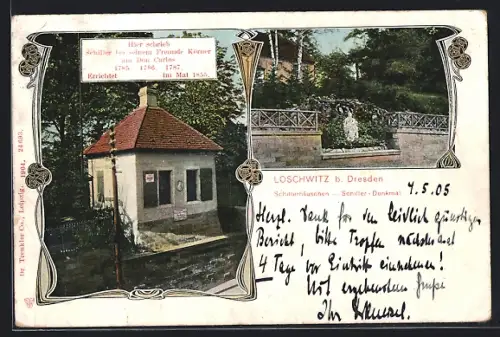 Hier schrieb
Schiller bei seinem Freunde Körner
am Don Carlos
1785. 1786. 1787.
Errichtet im Mai 1855.
LOSCHWITZ b. Dresden
Schillerhäuschen — Schiller-Denkmal
4.5.05
Herzl. Dank für den leidlich günstigen
Bericht, bitte Tropfen
4 Tage vor Eintritt einnehmen!
Mit ergebenstem Gruße
Ihr
Dr. Trenkler Co., Leipzig. 1904. 24 605.